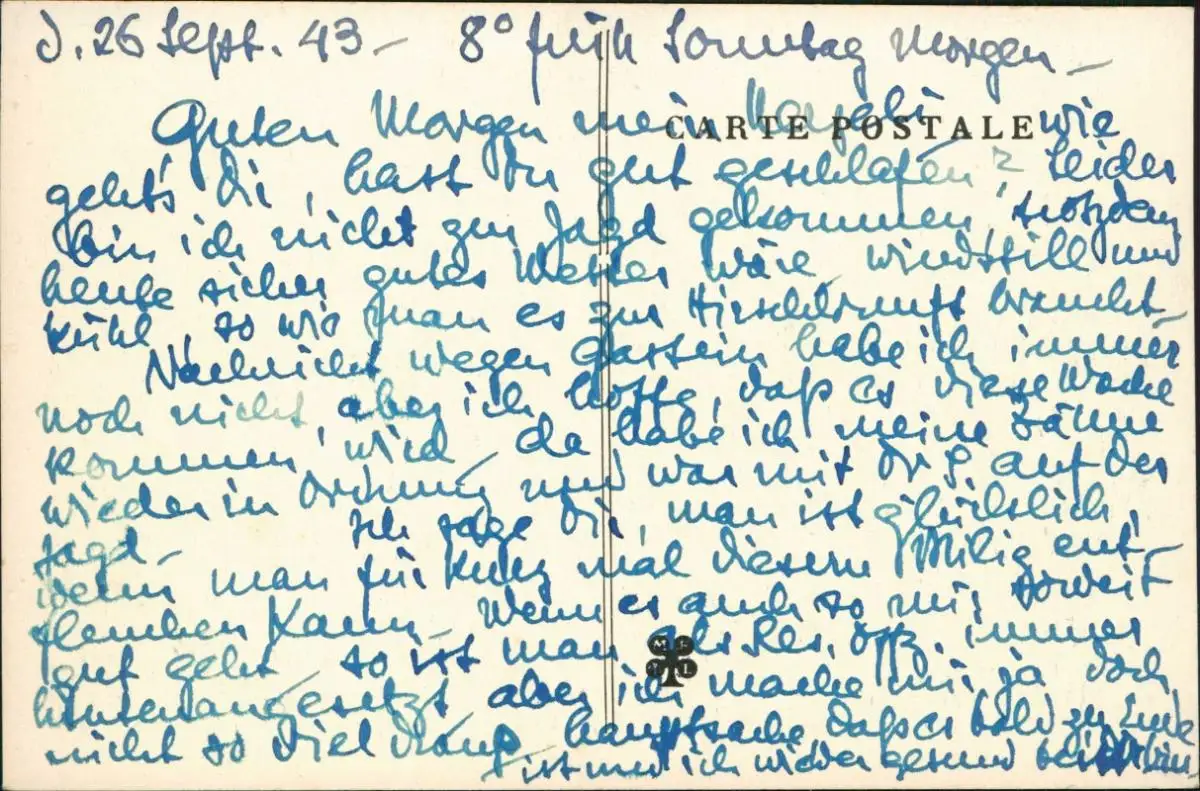 d. 26 Sept. 43 - 8° früh Sonntag Morgen -
CARTE POSTALE
Guten Morgen mein wie
geht's Dir, hast Du gut geschlafen? Leider
bin ich nicht zur Jagd gekommen, trotzdem
heute sicher gutes Wetter wäre, windstill und
kühl, so wie man es zur Hirschbrunft braucht -
Nachricht wegen Gastein habe ich immer
noch nicht, aber ich hoffe, daß es diese Woche
kommen wird - da habe ich meine Zähne
wieder in Ordnung und war mit Dr. G. auf der
Jagd - Ich sage Dir, man ist glücklich,
wenn man für kurz mal diesem Milig ent-
fleuchen kann - Wenn es auch so mir soweit
gut geht - so ist man als Res. Off. immer
hintenangesetzt - aber ich mache mir ja doch
nicht so viel draus, hauptsache daß es bald zu Ende
ist und ich wieder gesund bei bin